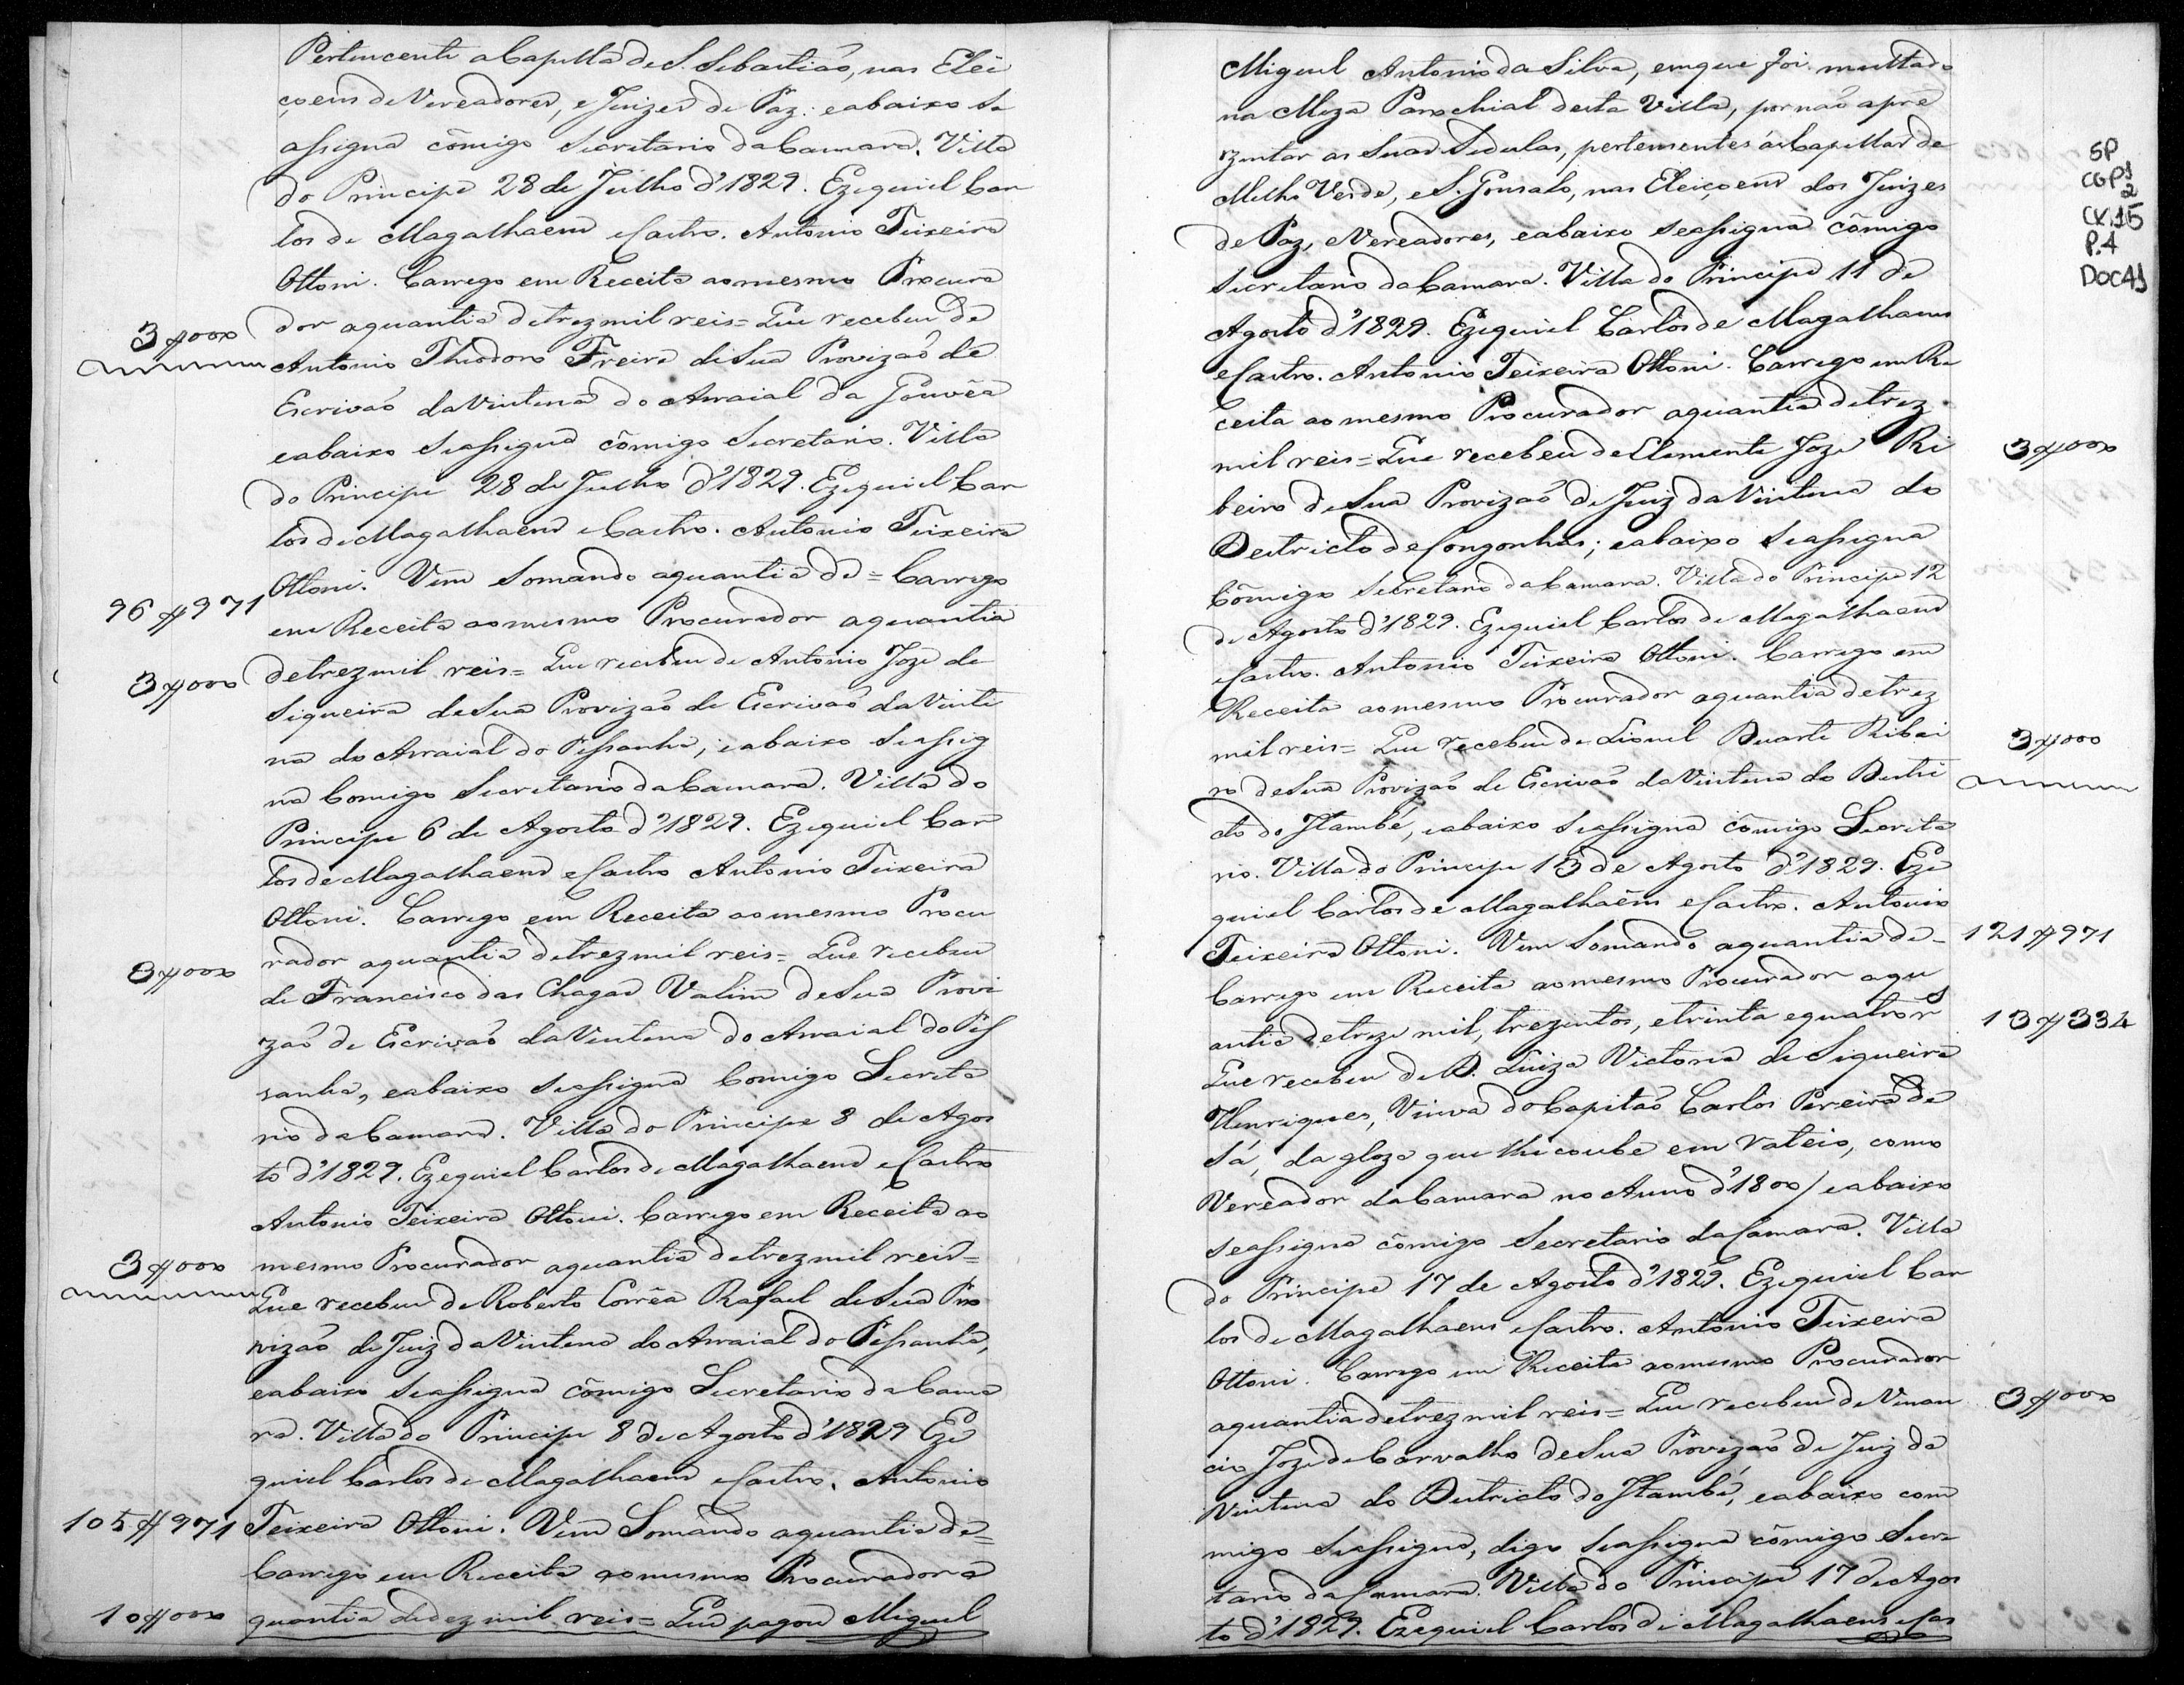 Pertencente a Capella de S. Sebastiaõ, nas Elei
çoens de Vereadores, e Juizes de Paz: e abaixo se
assigna cômigo Secretario da Camara. Villa
do Principe 28 de Julho d'1829. Ezequiel Car
los de Magalhaens e Castro. Antonio Teixeira
Ottoni. Carrego em Receita ao mesmo Procura
3$000 dor aquantia de trez mil reis = Que recebeu de
Antonio Theodoro Freire de Sua Provizaõ de
Escrivaõ da Vintena do Arraial da Gouvêa
e abaixo se assigna cômigo Secretario. Villa
do Principe 28 de Julho d'1829. Ezequiel Car
los de Magalhaens e Castro. Antonio Teixeira
Ottoni. Vem Somando aquantia de = Carrego
96$971 em Receita ao mesmo Procurador aquantia
3$000 de trez mil reis = Que recebeu de Antonio Joze de
Siqueira de Sua Provizaõ de Escrivaõ da Vinte
na do Arraial do Pessanha, e abaixo se assig
na Comigo Secretario da Camara. Villa do
Principe 6 de Agosto d'1829. Ezequiel Car
los de Magalhaens e Castro Antonio Teixeira
Ottoni. Carrego em Receita ao mesmo Procu
3$000 rador aquantia de trez mil reis = Que recebeu
de Francisco das Chagas Valim de Sua Provi
zaõ de Escrivaõ da Vintena do Arraial do Pes
sanha, e abaixo se assigna Comigo Secreta
rio da Camara. Villa do Principe 8 de Agos
to d'1829. Ezequiel Carlos de Magalhaens e Castro
Antonio Teixeira Ottoni. Carrego em Receita ao
3$000 mesmo Procurador aquantia de trez mil reis =
Que recebeu de Roberto Corrêa Rafael de Sua Pro
vizaõ de Juiz da Vintena do Arraial do Pessanha,
e abaixo se assigna cômigo Secretario da Cama
ra. Villa do Principe 8 de Agosto d'1829 Eze
quiel Carlos de Magalhaens e Castro. Antonio
105$971 Teixeira Ottoni. Vem Somando aquantia de =
Carrego em Receita ao mesmo Procurador a
10$000 quantia de dez mil reis = Que pagou Miguel
Miguel Antonio da Silva, em que foi multado
na Meza Parochial desta Villa, por naõ apre
zentar as Suas Sedulas, pertensentes ás Capellas de
Milho Verde, e S. Gonsalo, nas Eleiçoens dos Juizes
de Paz, e Vereadores, e abaixo se assigna cômigo
Secretario da Camara. Villa do Principe 11 de
Agosto d'1829. Ezequiel Carlos de Magalhaens
e Castro. Antonio Teixeira Ottoni. Carrego em Re
ceita ao mesmo Procurador aquantia de trez
mil reis = Que recebeu de Clemente Joze Ri 3$000
beiro de Sua Provizaõ de Juiz da Vintena do
Destricto de Congonhas; e abaixo se assigna
Cômigo Secretario da Camara. Villa do Principe 12
de Agosto d'1829. Ezequiel Carlos de Magalhaens
e Castro. Antonio Teixeira Ottoni. Carrego em
Receita ao mesmo Procurador aquantia de trez
mil reis = Que recebeu de Lionel Duarte Ribei 3$000
ro de Sua Provizaõ de Escrivaõ da Vintena do Destri
cto do Itambé, e abaixo se assigna cômigo Secreta
rio. Villa do Principe 13 de Agosto d'1829. Eze
quiel Carlos de Magalhaens e Castro. Antonio
Teixeira Ottoni. Vem Somando aquantia de = 121$971
Carrego em Receita ao mesmo Procurador aqu
antia de treze mil, trezentos, e trinta e quatro rs 13$334
Que recebeu de D. Luiza Victoria de Siqueira
Henriques, Viuva do Capitaõ Carlos Pereira de
Sá, da gloza que lhe coube em rateio, como
Vereador da Camara no Anno d'1800/ e abaixo
se assigna cômigo Secretario da Camara. Villa
do Principe 17 de Agosto d'1829. Ezequiel Car
los de Magalhaens e Castro. Antonio Teixeira
Ottoni. Carrego em Receita ao mesmo Procurador
aquantia de trez mil reis = Que recebeu de Venan 3$000
cio Joze de Carvalho de Sua Provizaõ de Juiz da
Vintena do Destricto do Itambé, e abaixo com
migo se assigna, digo se assigna cômigo Secre
tario da Camara. Villa do Principe 17 de Agos
to d'1829. Ezequiel Carlos de Magalhaens e Cas
SP
CGP1
2
CX.15
P.4
DOC41